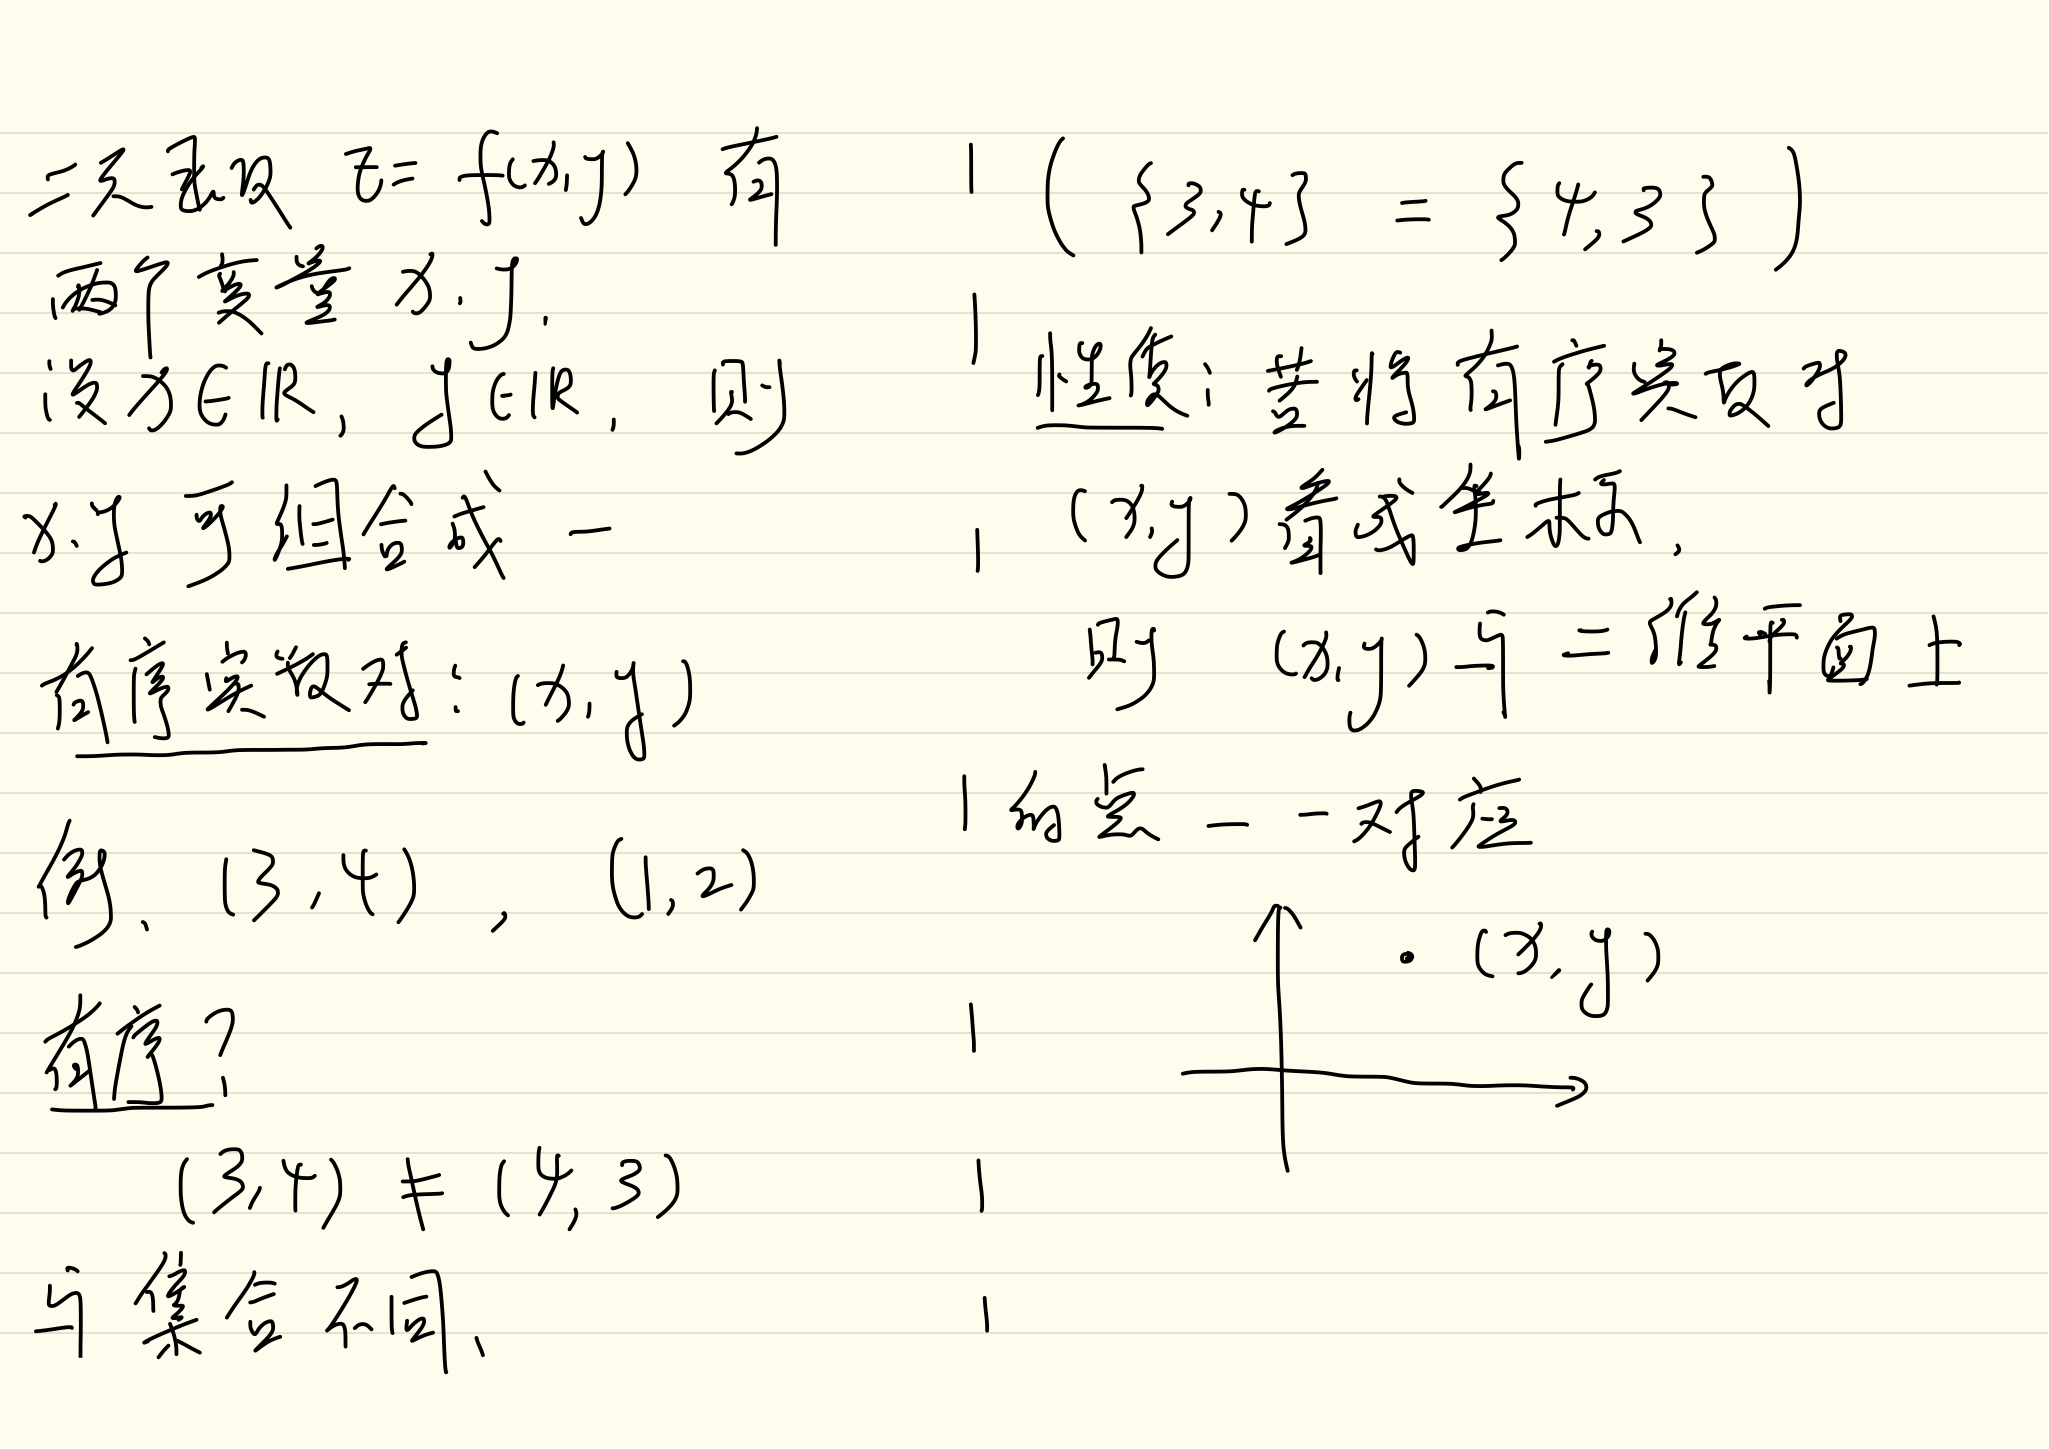 二元函数 z = f(x,y) 有
两个变量 x.y.
设 x∈ℝ, y∈ℝ, 则
x.y 可组合成一
有序实数对: (x,y)
例. (3,4), (1,2)
有序?
(3,4) ≠ (4,3)
与集合不同.
({3,4} = {4,3})
性质: 若将有序实数对
(x,y) 看成坐标,
则 (x,y) 与二维平面上
的点一一对应
(x,y)